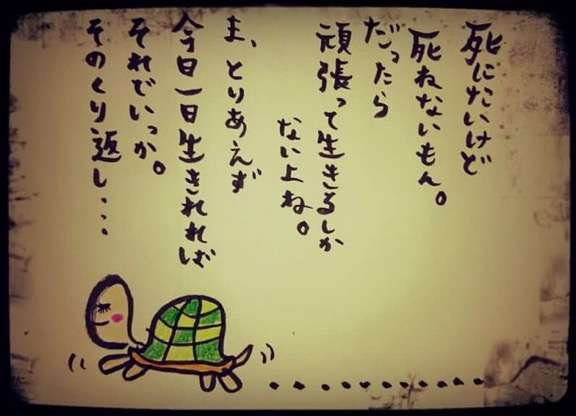 死にたいけど
死ねないもん。
だったら
頑張って生きるしか
ない上ね。
ま、とりあえず
今日一日生きれれば
それでいっか。
そのくり返し・・・